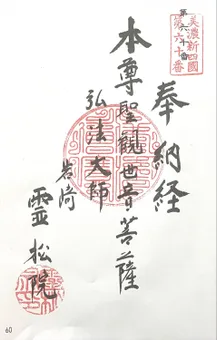 美濃新四國
第六十番
奉納経
本尊聖観世音菩薩
弘法大師
岩崎
霊松院
60